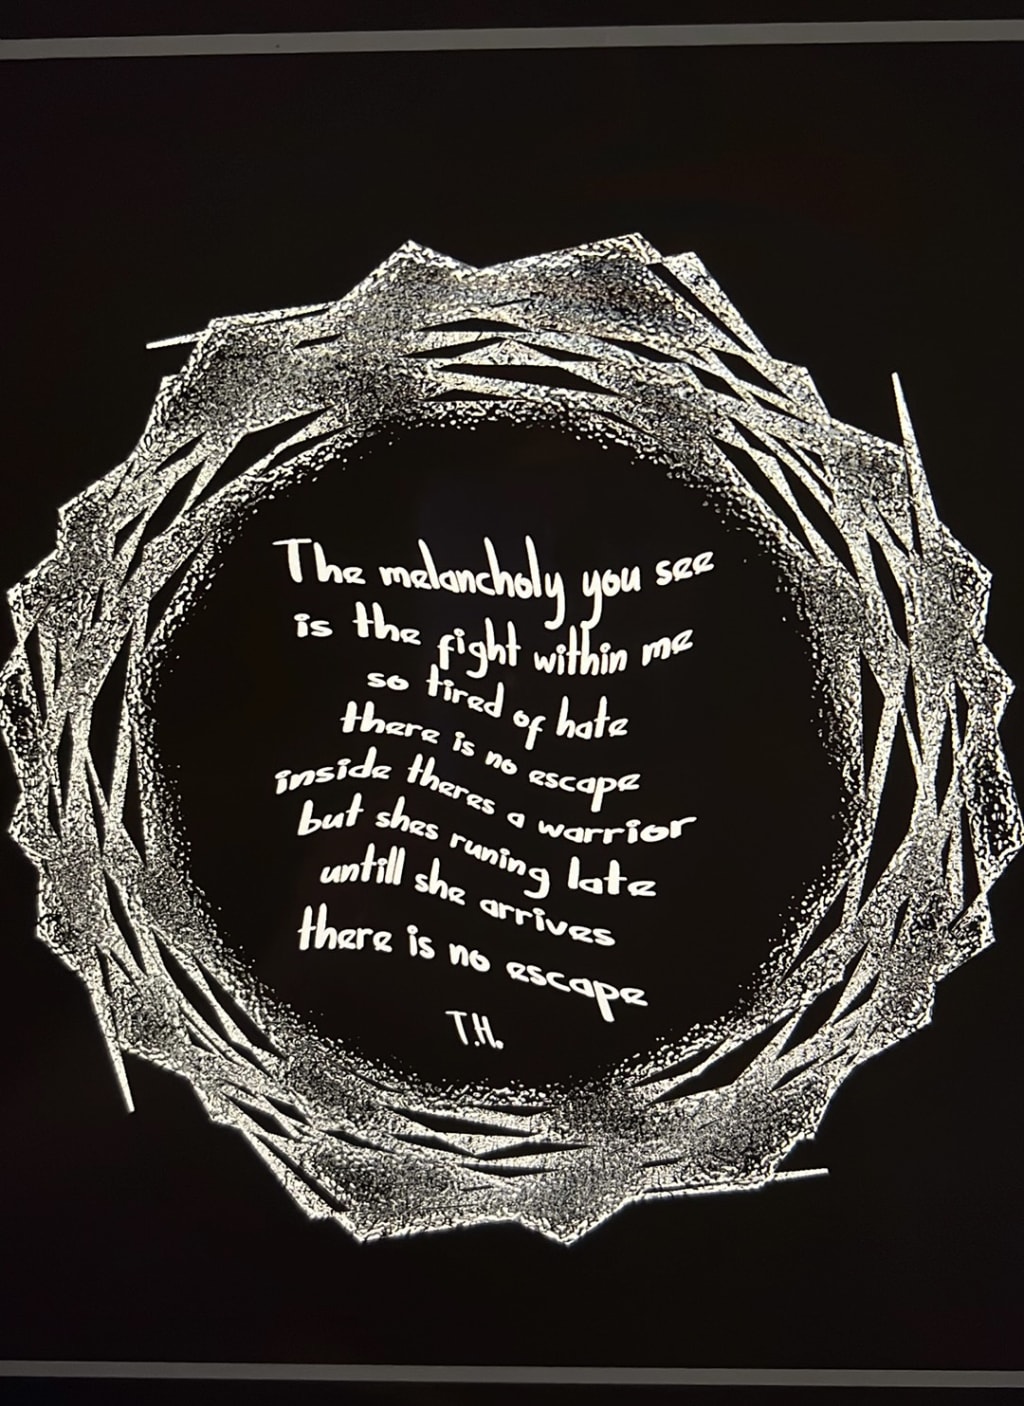 The melancholy you see
is the fight within me
so tired of hate
there is no escape
inside theres a warrior
but shes runing late
untill she arrives
there is no escape
T.H.